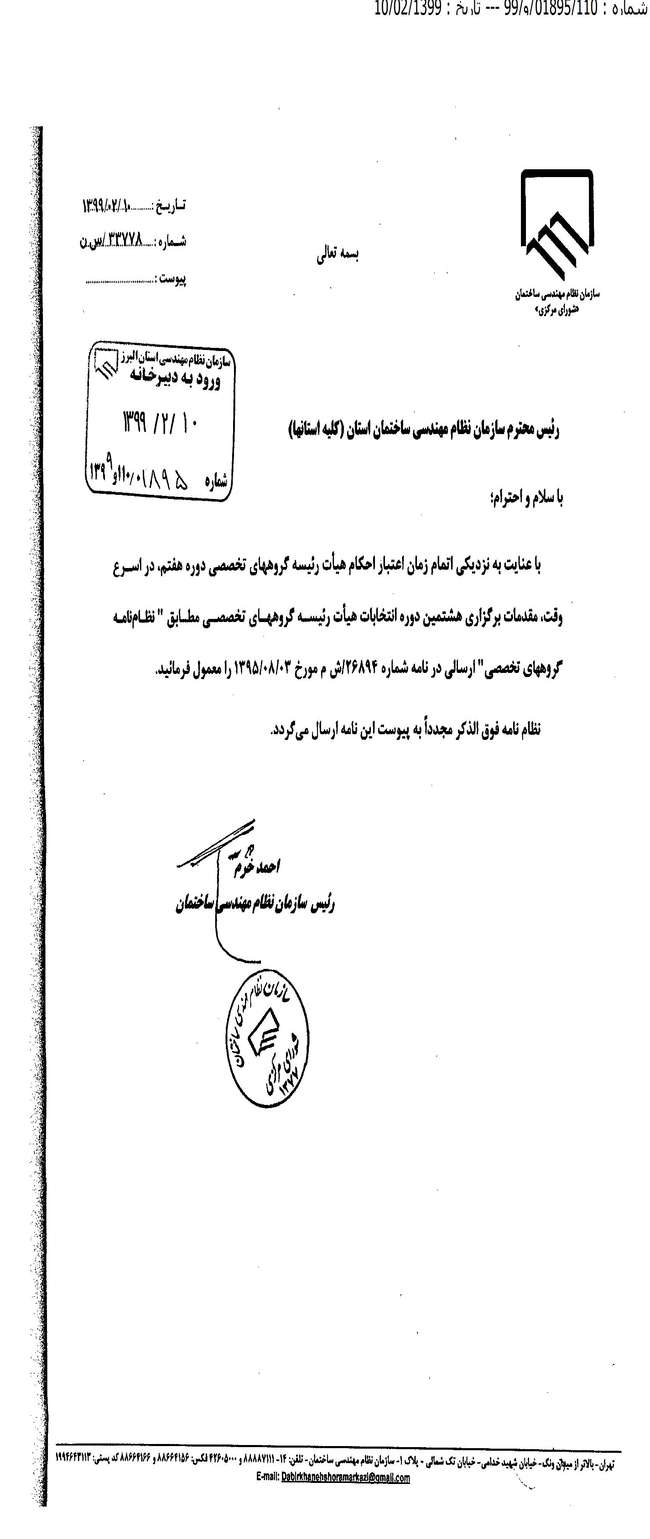 شماره : 99/و/01895/110 --- تاریخ : 10/02/1399
سازمان نظام مهندسی ساختمان
«شورای مرکزی»
بسمه تعالی
تاریخ :..........۱۳۹۹/۰۲/۱۰
شماره :.....۳۳۷۷۸/س.ن
پیوست :..............................
سازمان نظام مهندسی استان البرز
ورود به دبیرخانه
۱۳۹۹/۲/۱۰
شماره
رئیس محترم سازمان نظام مهندسی ساختمان استان (کلیه استانها)
با سلام و احترام؛
با عنایت به نزدیکی اتمام زمان اعتبار احکام هیأت رئیسه گروههای تخصصی دوره هفتم، در اسرع
وقت، مقدمات برگزاری هشتمین دوره انتخابات هیأت رئیسه گروههای تخصصی مطابق " نظام‌نامه
گروههای تخصصی" ارسالی در نامه شماره ۲۶۸۹۴/ش م مورخ ۱۳۹۵/۰۸/۰۳ را معمول فرمائید.
نظام نامه فوق الذکر مجدداً به پیوست این نامه ارسال می‌گردد.
احمد خرم
رئیس سازمان نظام مهندسی ساختمان
سازمان نظام مهندسی ساختمان
شورای مرکزی
۱۳۷۷
تهران- بالاتر از میدان ونک- خیابان شهید خدامی- خیابان تک شمالی - پلاک ۱- سازمان نظام مهندسی ساختمان - تلفن: ۱۴- ۸۸۸۸۷۱۱۱ و ۴۲۶۰۵۰۰۰ فکس: ۸۸۶۶۴۱۵۶ و ۸۸۶۶۴۱۶۶ کد پستی: ۱۹۹۴۶۶۳۱۱۳
E-mail: Dabirkhanehshoramarkazi@gmail.com